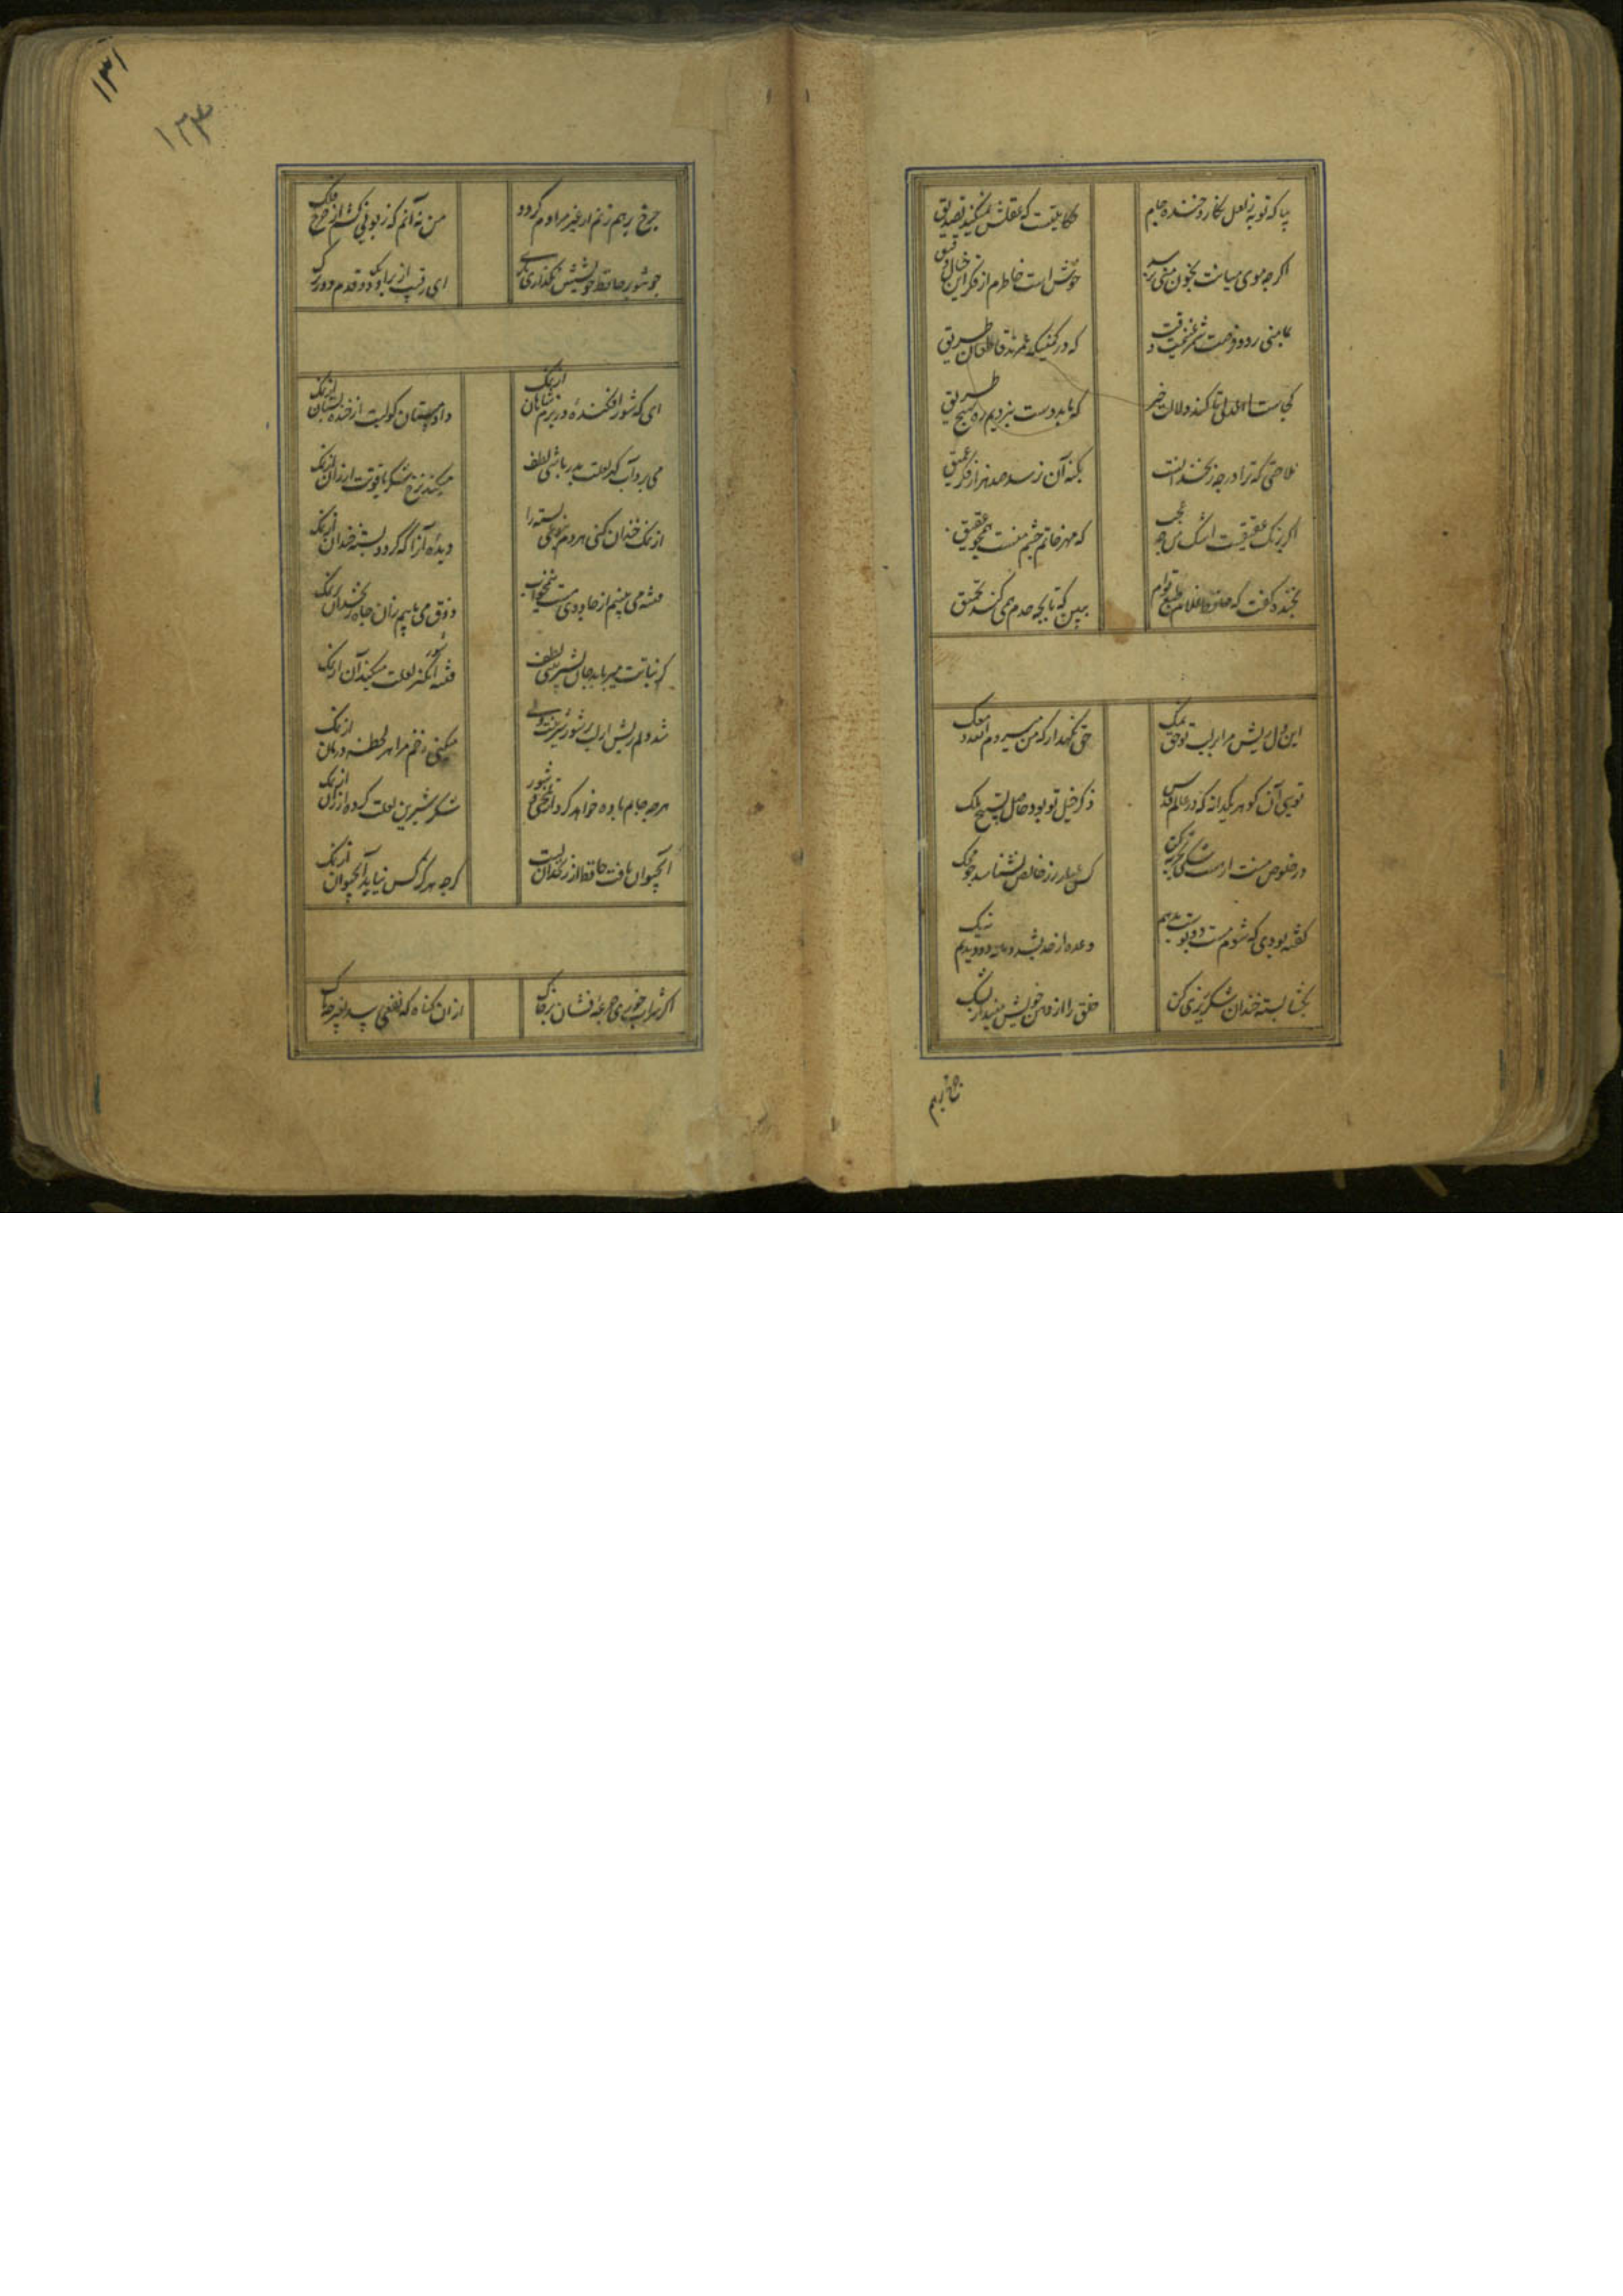 بیا که توبه ز لعل نکار و خنده جام حکایتیست که عقلش نمیکند تصدیق
اکرچه موی میانت بچون منی نرسد خوش است خاطرم از فکر این خیال دقیق
بمامنی رو و فرصت شمر غنیمت وقت که در کمینکه عمرند قاطعان طریق
کجاست اهل دلی تا کند دلالت خیر که ما بدوست نبردیم ره بهیچ طریق
حلاوتی که ترا در چه زنخدانست بکنه آن نرسد صد هزار فکر عمیق
اکر برنک عقیقست اشک من چه عجب که مهر خاتم چشم منست همچو عقیق
بخنده کفت که حافظ غلام طبع توام ببین که تا بچه حدم همی کند تحمیق
این دل ریش مرا بر لب تو حق نمک حق نکهدار که من میروم الله معک
تویی آن کوهر یکدانه که در عالم قدس ذکر خیل تو بود حاصل تسبیح ملک
در خلوص منت ار هست شکی تجربه کن کس عیار زر خالص نشناسد چو محک
کفته بودی که شوم مست و دو بوست بدهم وعده از حد بشد و ما نه دو دیدیم نه یک
بکشا پسته خندان شکرریزی کن خلق را از دهن خویش مینداز بشک
۱۳۱
۱۳۳
چرخ بر هم زنم ار غیر مرادم کردد من نه آنم که زبونی کشم از چرخ فلک
چو بر حافظ خویشش نکذاری باری ای رقیب از بر او یک دو قدم دورترک
ای که شور افکنده در بزم شاهان از نمک داد مستان کو لبت از خنده بستان از نمک
می برد آب کهر لعلت بدرباشی لطف میکند نرخ شکر یاقوتت ارزان از نمک
از نمک خندان کنی هر دم بنوعی پسته را دیده آنرا که کردد پسته خندان از نمک
ذوق می یابیم زان چاه زنخدان از نمک
کر نباتت میرباید جان بشیرینی لطف فتنه انکیز لعلت میکند آن از نمک
شد دلم ریش از لب پر شور شیرینت ولی میکنی زخم مرا هر لحظه درمان از نمک
هرچه جام باده خواهد کرد از تلخی و شور شکر شیرین لعلت کرده از آن از نمک
آبحیوان یافت حافظ از لبت کرچه هرکز کس نیابد آبحیوان از نمک
اکر شراب خوری جرعه فشان بر خاک از آن کناه که نفعی رسد بغیر چه باک